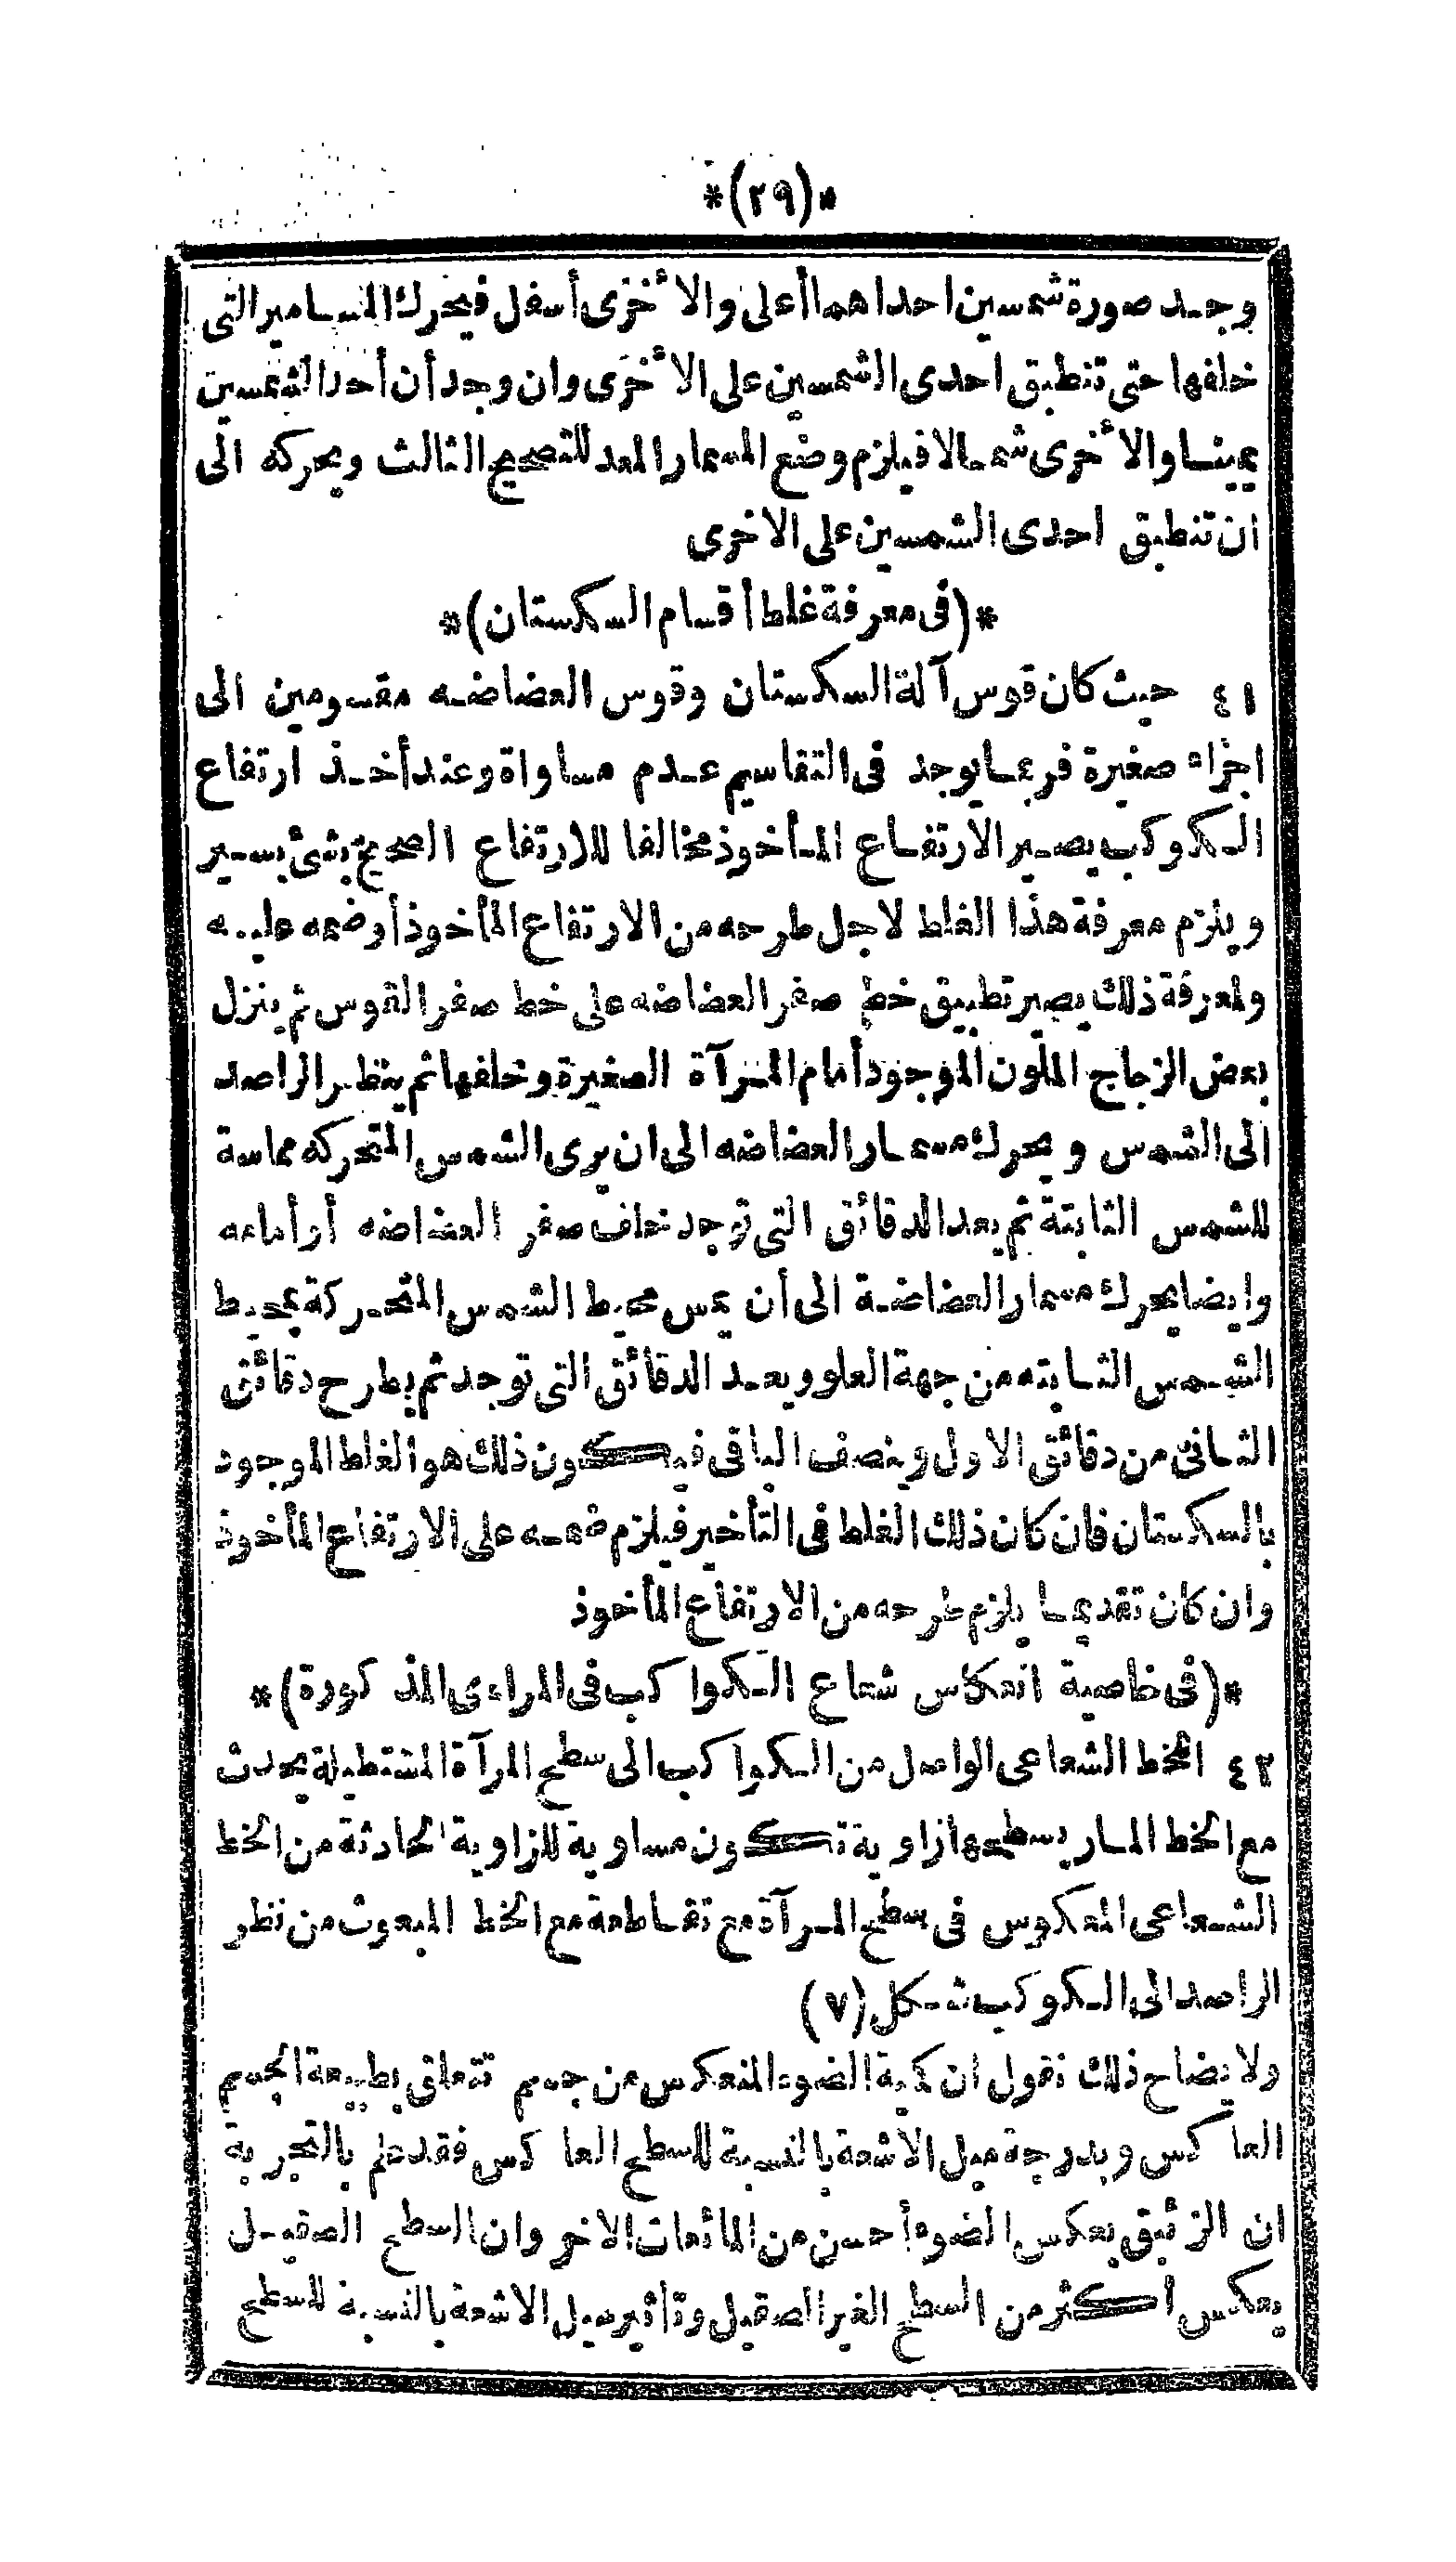 *(٢٩)*
وجد صورة شمسين احداهما أعلى والأخرى أسفل فيحرك المسامير التى
خلفها حتى تنطبق احدى الشمسين على الأخرى وان وجد أن أحد الشمسين
يمينا والأخرى شمالا فيلزم وضع المسمار المعد للتصحيح الثالث ويحركه الى
ان تنطبق احدى الشمسين على الاخرى
*(فى معرفة غلط أقسام السكستان)*
٤١ حيث كان قوس آلة السكستان وقوس العضاضه مقسومين الى
اجزاء صغيرة فربما يوجد فى التقاسيم عدم مساواة وعند أخذ ارتفاع
الكوكب يصير الارتفاع المأخوذ مخالفا للارتفاع الصحيح بشئ يسير
ويلزم معرفة هذا الغلط لاجل طرحه من الارتفاع المأخوذ أوضمه عليه
ولمعرفة ذلك يصير تطبيق خط صفر العضاضه على خط صفر القوس ثم ينزل
بعض الزجاج الملون الموجود أمام المرآة الصغيرة وخلفها ثم ينظر الراصد
الى الشمس ويحرك مسمار العضاضه الى ان يرى الشمس المتحركه مماسة
للشمس الثابتة ثم يعد الدقائق التى توجد خلف صفر العضاضه أو أمامه
وايضا يحرك مسمار العضاضة الى أن يمس محيط الشمس المتحركة بمحيط
الشمس الثابته من جهة العلو ويعد الدقائق التى توجد ثم يطرح دقائق
الثانى من دقائق الاول وينصف الباقى فيكون ذلك هو الغلط الموجود
بالسكستان فان كان ذلك الغلط فى التأخير فيلزم ضمه على الارتفاع المأخوذ
وان كان تقديما يلزم طرحه من الارتفاع المأخوذ
*(فى خاصية انعكاس شعاع الكواكب فى المراءى المذكورة)*
٤٢ الخط الشعاعى الواصل من الكواكب الى سطح المرآة المستطيلة يحدث
مع الخط المار بسطحها زاوية تكون مساوية للزاوية الحادثة من الخط
الشعاعى المعكوس فى سطح المرآة مع تقاطعه مع الخط المبعوث من نظر
الراصد الى الكوكب شكل (٧)
ولايضاح ذلك نقول ان كمية الضوء المنعكس من جسم تتعلق بطبيعة الجسم
العاكس وبدرجة ميل الاشعة بالنسبة للسطح العاكس فقد علم بالتجربة
ان الزئبق يعكس الضوء أحسن من المائعات الاخر وان السطح الصقيل
يعكس أكثر من السطح الغير الصقيل وتاثير ميل الاشعة بالنسبة للسطح